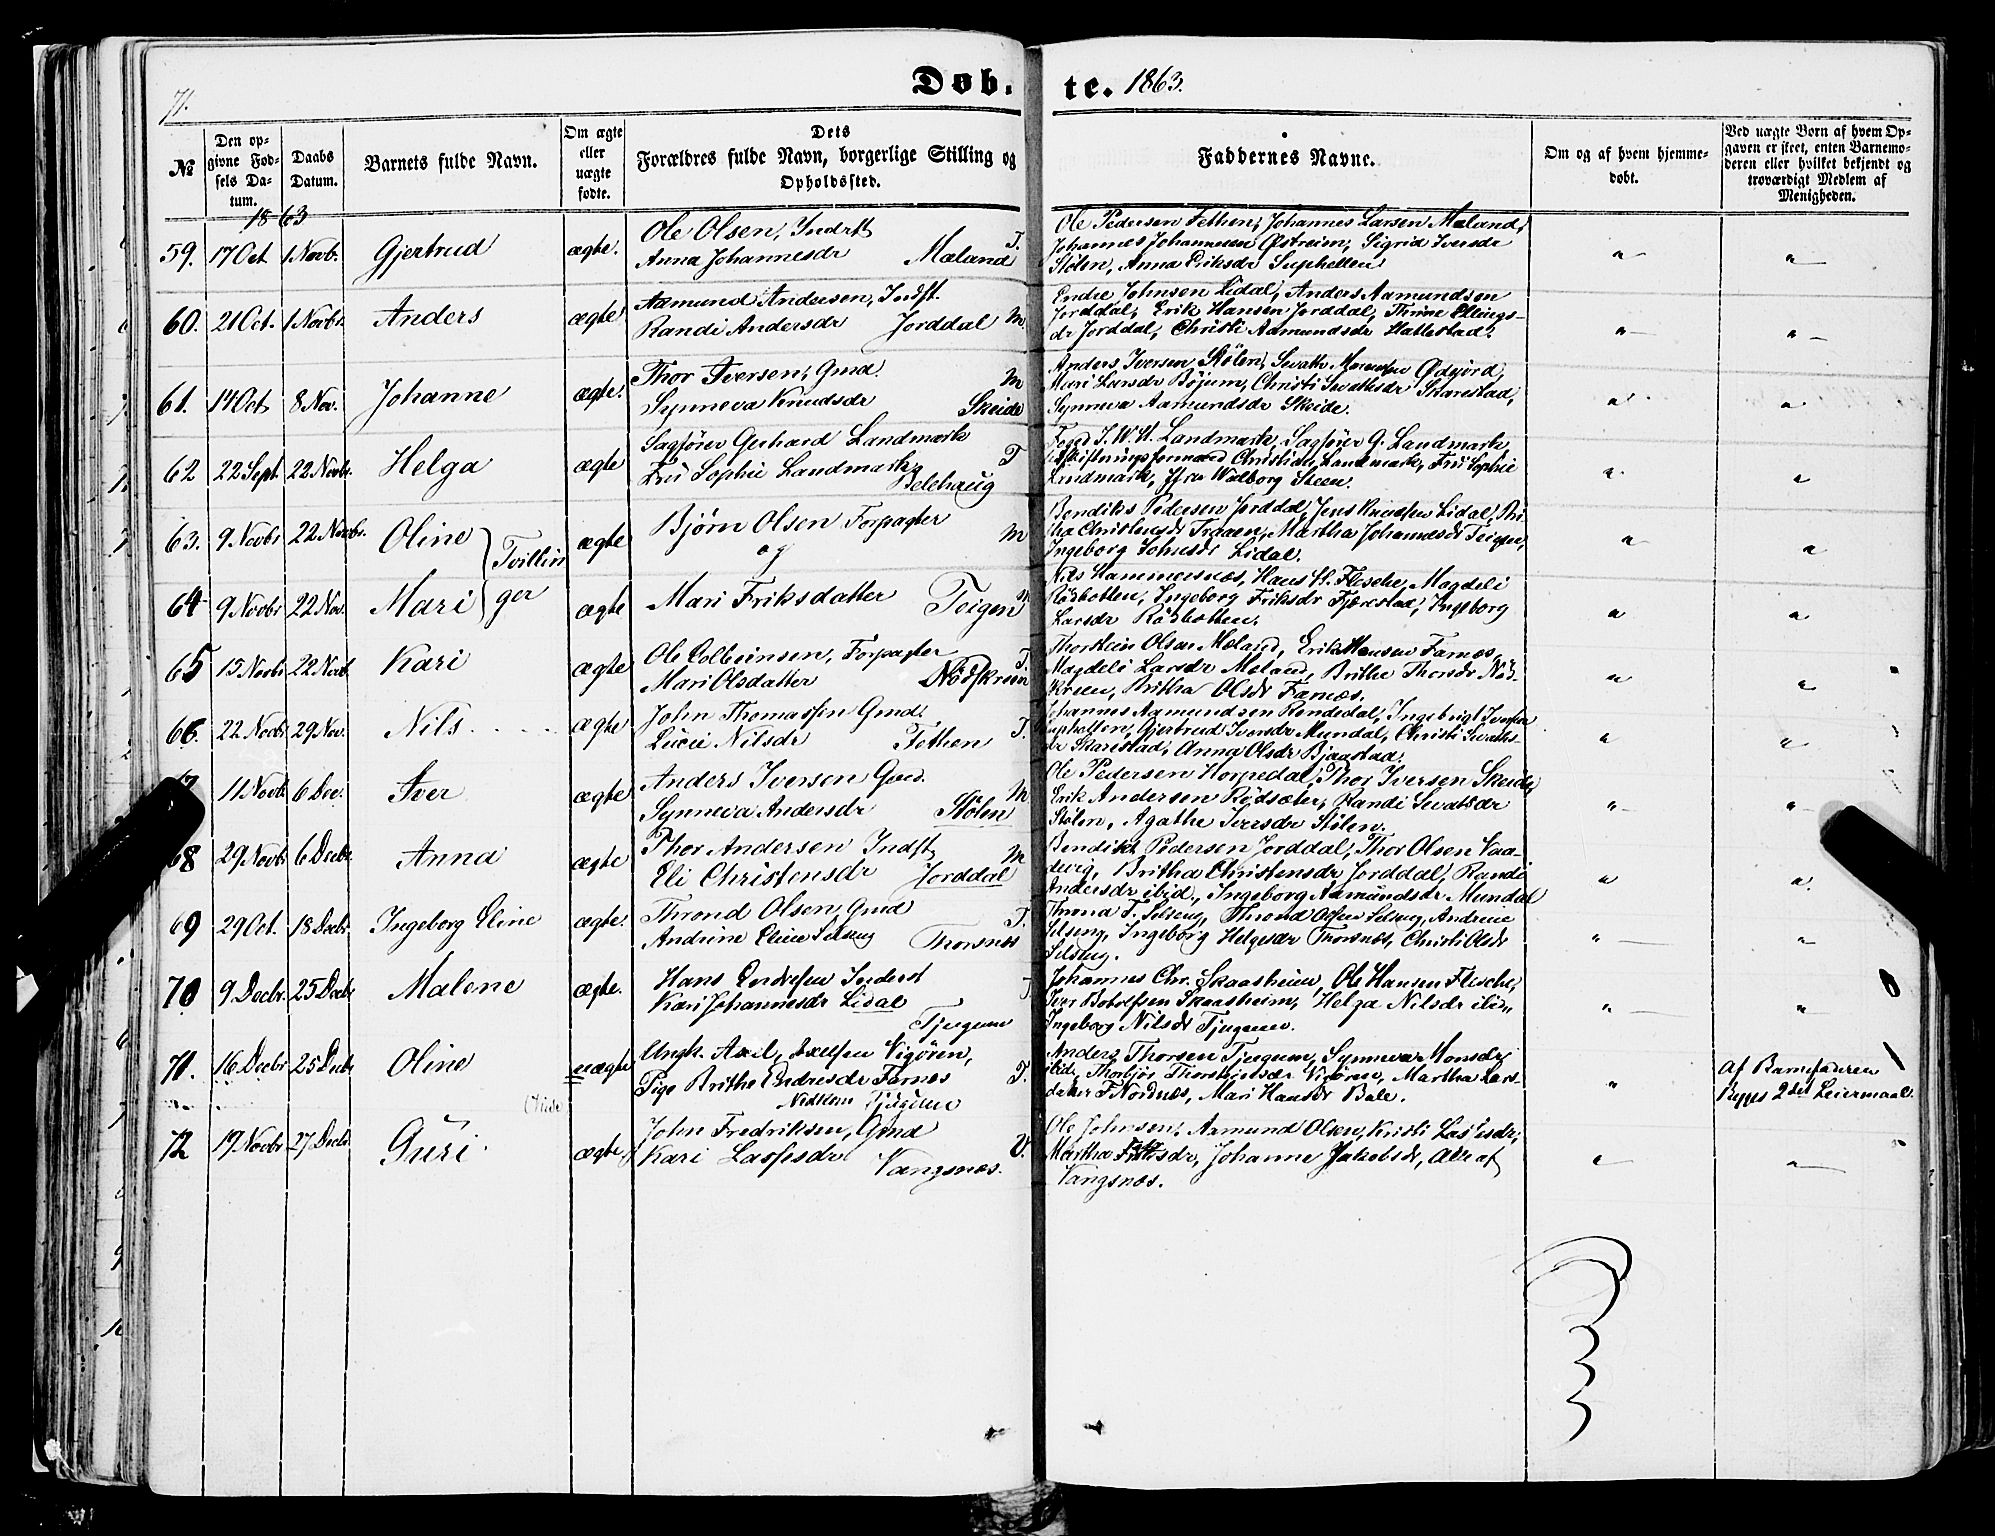 71.
Døb.
te. 1863.
№
Den opgivne Fødsels Datum.
Daabs Datum.
Barnets fulde Navn.
Om ægte eller uægte fødte.
Dets
Forældres fulde Navn, borgerlige Stilling og
Opholdssted.
Faddernes Navne.
Om og af hvem hjemmedøbt.
Ved uægte Børn af hvem Opgaven er skeet, enten Barnemoderen eller hvilket bekjendt og troværdigt Medlem af Menigheden.
1863
59. 17 Oct 1 Novb. Gjertrud ægte.
Ole Olsen, Indrst
Anna Johannesdr Mæland T.
Ole Pedersen Fethen, Johannes Larsen Mæland,
Johannes Johannesen Østreim, Sigrid Iversdr
Stølen, Anna Eriksdr Suphellen
60. 21 Oct. 1 Novbr. Anders ægte
Aamund Andersen, Indst.
Randi Andersdr Jorddal M
Endre Johnsen Lidal, Anders Aamundsen
Jorddal, Erik Hansen Jorddal, Thrine Ellingsdr Jorddal, Christi Aamundsdr Hattestad.
61. 14 Oct 8 Nov. Johanne ægte.
Thor Iversen, Gmd. M
Synneva Knudsdr Skeide
Anders Iversen Stølen, Ødegård,
Mari Larsdr Bøjum, Christi Sevatsdr Skarestad,
Synneva Aamundsdr Skeide.
62 22 Sept. 22 Novbr. Helga ægte
Sagfører Gerhard Landmark T
Fru Sophie Landmark, Belehaug
Foged J. W. H. Landmark, Sagfører G. Landmark,
Udskiftningsformand Christian Landmark, Fru Sophie
Landmark, Jfru Walborg Steen.
63. 9 Novbr 22 Novbr. Oline Tvillin ægte
Bjørn Olsen Forpagter
og M
Bendiks Pedersen Jorddal, Jens Knudsen Lidal, Britha Christensdr Traaen, Martha Johannesdr Teigen,
Ingeborg Johnsdr Lidal.
64 9 Novbr 22 Nov. Mari ger ægte
Mari Eriksdatter Teigen
Nils Hammersnæs, Hans H. Flesche, Magdeli
Rødsbotten, Ingeborg Eriksdr Fjærestad, Ingeborg
Larsdr Rødsbotten.
65 15 Novbr 22 Novb. Kari ægte
Ole Colbeinsen, Forpagter T.
Mari Olsdatter Nødskreen
Thorstein Olsen Mæland, Erik Monsen Farnæs,
Magdeli Larsdr Mæland, Brithe Thorsdr Nødskreen, Britha Olsdr Farnæs.
66. 22 Novbr 29 Nov. Nils ægte
John Thomassen Gmd. T.
Lucie Nilsdr Fethen
Johannes Aamundsen Rendedal, Ingebrigt Iversen
Suphellen, Gjertrud Iversdr Mundal, Christi Sevatsdr Skarestad, Anna Olsdr Bjaastad.
11 Novb. 6 Dec. Iver ægte
Anders Iversen Gmd. M
Synneva Andersdr Stølen
Ole Pedersen Horpedal, Thor Iversen Skeide,
Erik Andersen Rødsæter, Randi Sevatsdr
Stølen, Agathe Iversdr Stølen.
68 29 Novbr 6 Decbr Anna ægte
Thor Andersen Indst M
Eli Christensdr Jorddal
Bendikt Pedersen Jorddal, Thor Olsen Vaadevig, Britha Christensdr Jorddal, Randi
Andersdr ibid., Ingeborg Aamundsdr Mundal
69 29 Oct. 18 Decbr Ingeborg Eline ægte.
Thrond Olsen, Gmd T.
Andrine Eline Selseng Thorsnæs
Thrond T. Selseng, Thrond Olsen Selseng, Andrine
Selseng, Ingeborg Helgesdr Thorsnæs, Christi Olsdr
Selseng.
70 9 Decbr. 25 Decbr Malene ægte.
Hans Endresen Inderst T
Kari Johannesdr Lidal
Tjugum
Johannes Chr. Skaasheim, Ole Hansen Flesche,
Iver Botolfsen Skaasheim, Helga Nilsdr ibid.,
Ingeborg Nilsdr Tjugum.
71. 16 Decbr 25 Decbr Oline uægte
Ungk. Axel Axelsen Vigøren,
Pige Brithe Endresdr Farnæs T.
Tjugum
Anders Thorsen Tjugum, Synneva Monsdr
ibid., Thorbjør Vigøren, Martha Larsdatter F Nordnæs, Mari Hansdr Bale.
Af Barnefaderen
Begges 2det Leiermaal.
72 19 Novbr 27 Decbr Guri ægte
John Fredriksen, Gmd
Kari Lassesdr Vangsnæs. V.
Ole Johnsen, Aamund Olsen, Kristi Lassesdr,
Martha , Johanne Jakobsdr, Alle af
Vangsnæs.